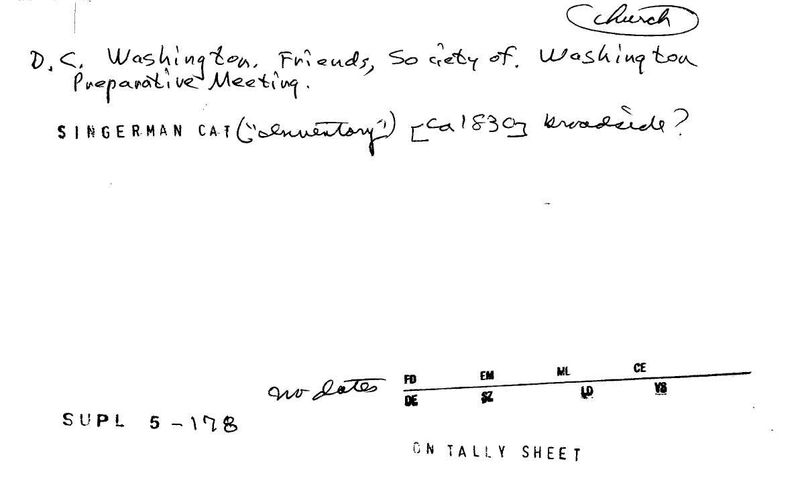 church
D.C. Washington. Friends, Society of. Washington
Preparative Meeting.
SINGERMAN CAT ("Inventory") [Ca 1830] broadside?
FD EM ML CE
no dates
DE SZ LD VS
SUPL 5-178
ON TALLY SHEET